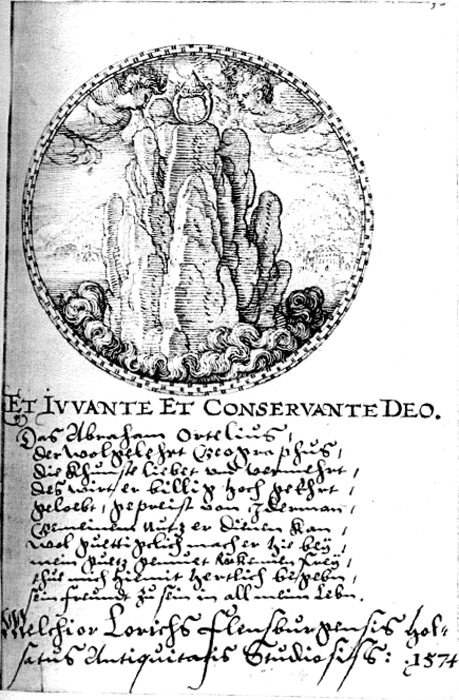 ET IVVANTE ET CONSERVANTE DEO.
Das Abraham Ortelius,
der wolgelehrt Geographus,
die Khunste liebet vnd vermehrt,
des wirt er billig hoch geehrt,
gelobt, gepreist von Jderman,
Gemeinem Nutz er dienen kan,
wol macher hie bey,
mein
thue mich hiemit hertlich begeben,
sein freundt zu sein in all meim Lebn.
Melchior Lorichs Flensburgensis Hol-
satus Antiquitatis Studiosiss: 1574